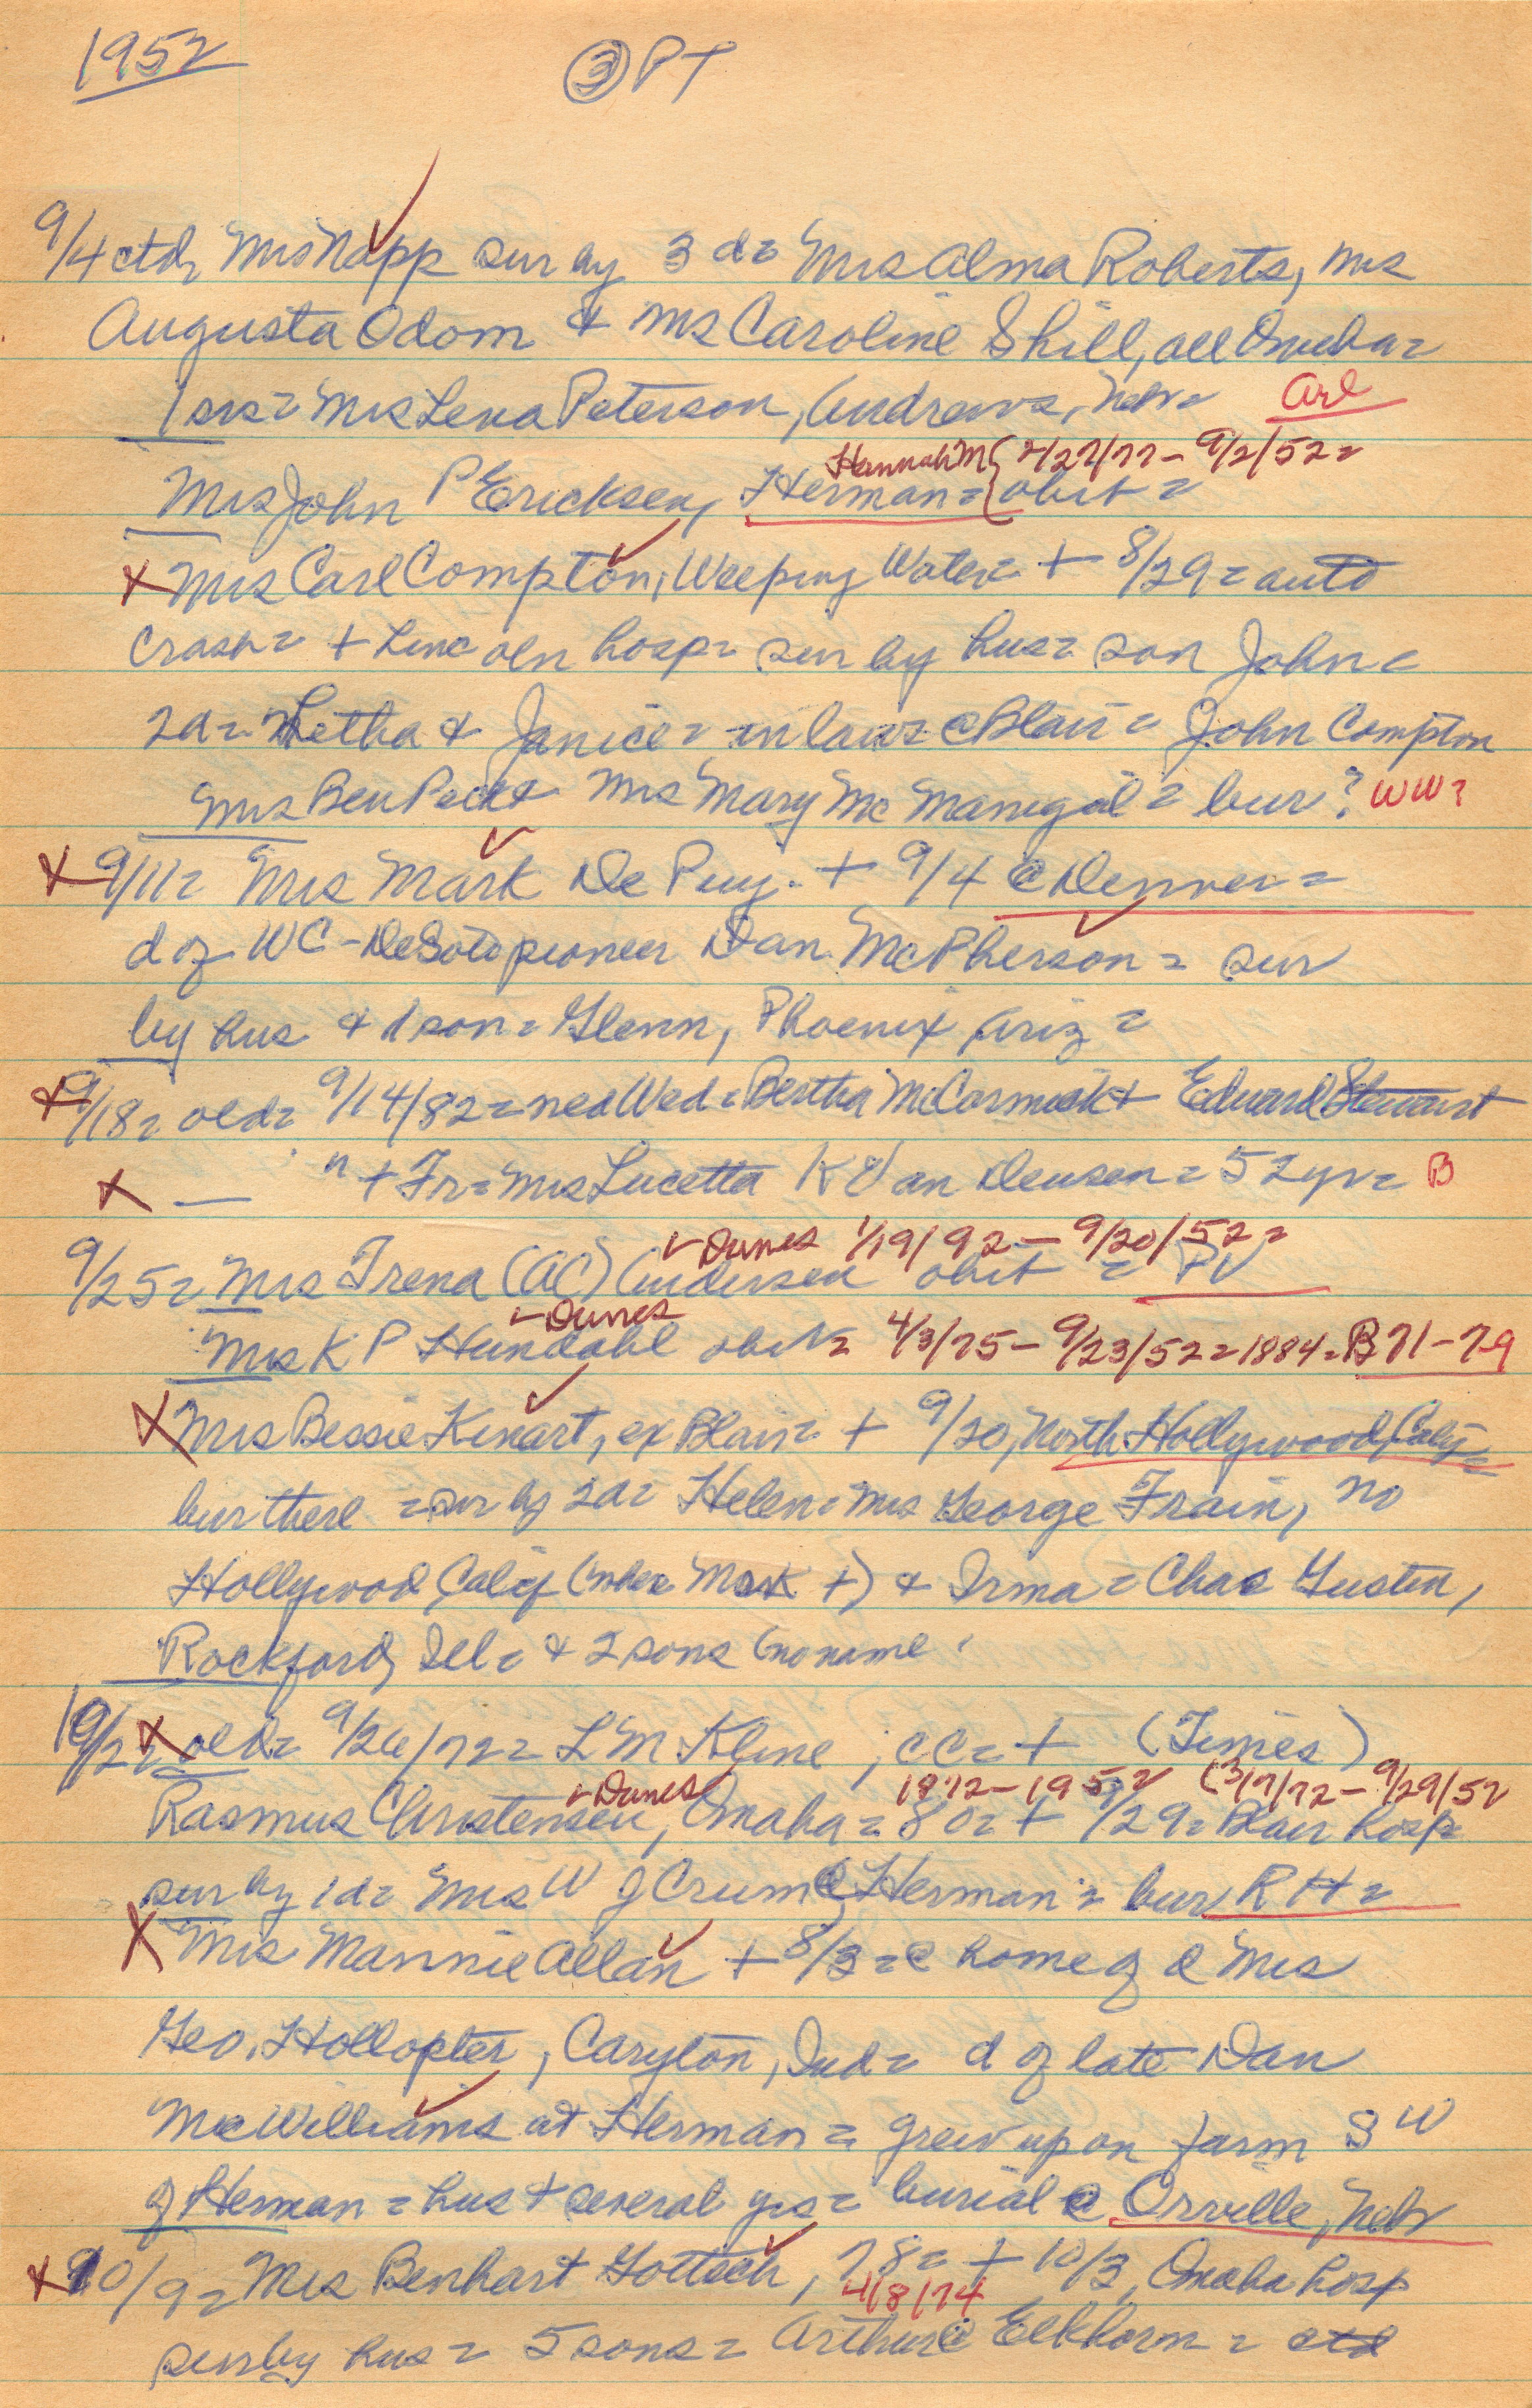 1952 ③ PT
9/4 ctd, Mrs Napp sur by 3 d= Mrs Alma Roberts, Mrs
Augusta Odom & Mrs Caroline Shill, all Omaha=
1 sis= Mrs Lena Peterson, Andrews, Nebr= Arl
Hannah M { 2/27/77 - 9/2/52 =
Mrs John P Ericksen, Herman = { obit =
X Mrs Carl Compton, Weeping Water = + 8/29 = auto
crash = + Lincoln hosp = sur by hus = son John =
2d = Letha & Janice = in laws @ Blair = John Compton
Mrs Ben Peck & Mrs Mary McManigal = bur? WW?
X 9/11 = Mrs Mark De Puy. + 9/4 @ Denver =
d of WC - DeSoto pioneer Dan McPherson = sur
by hus & 1 son = Glenn, Phoenix, Ariz =
X 9/18 = old = 9/14/82 = Wed = Bertha McCormick & Edward Stewart
X — " + Fr = Mrs Lucetta K Van Deusen = 52 yr = B
✓ Danes 1/19/92 - 9/20/52 =
9/25 = Mrs Irena (AC) Andersen obit = PV
✓ Danes
Mrs K P Hundahl obit = 4/3/75 - 9/23/52 = 1884 = B 71-79
X Mrs Bessie Kinart, ex Blair = + 9/20, North Hollywood, Calif =
bur there = sur by 2d = Helen = Mrs George Frain, no
Hollywood, Calif (where Mrs K +) & Irma = Chas Gustin,
Rockford, Ill = & 2 sons (no name
10/2 = X old = 9/26/72 = L M Kline, CC = + (Times)
✓ Danes 1872 - 1952 (3/7/72 - 9/29/52
Rasmus Christensen, Omaha = 80 = + 9/29 = Blair hosp
sur by 1d = Mrs W J Crum @ Herman = bur RH =
X Mrs Mannie Allan + 8/3 = @ home of d Mrs
Geo. Hollopeter, Caryton, Ind = d of late Dan
McWilliams at Herman = grew up on farm SW
of Herman = hus + several yrs = burial @ Orville, Nebr
X 10/9 = Mrs Benhart Gottsch, 78 = + 10/3, Omaha hosp
4/8/74
sur by hus = 5 sons = Arthur @ Elkhorn = ctd